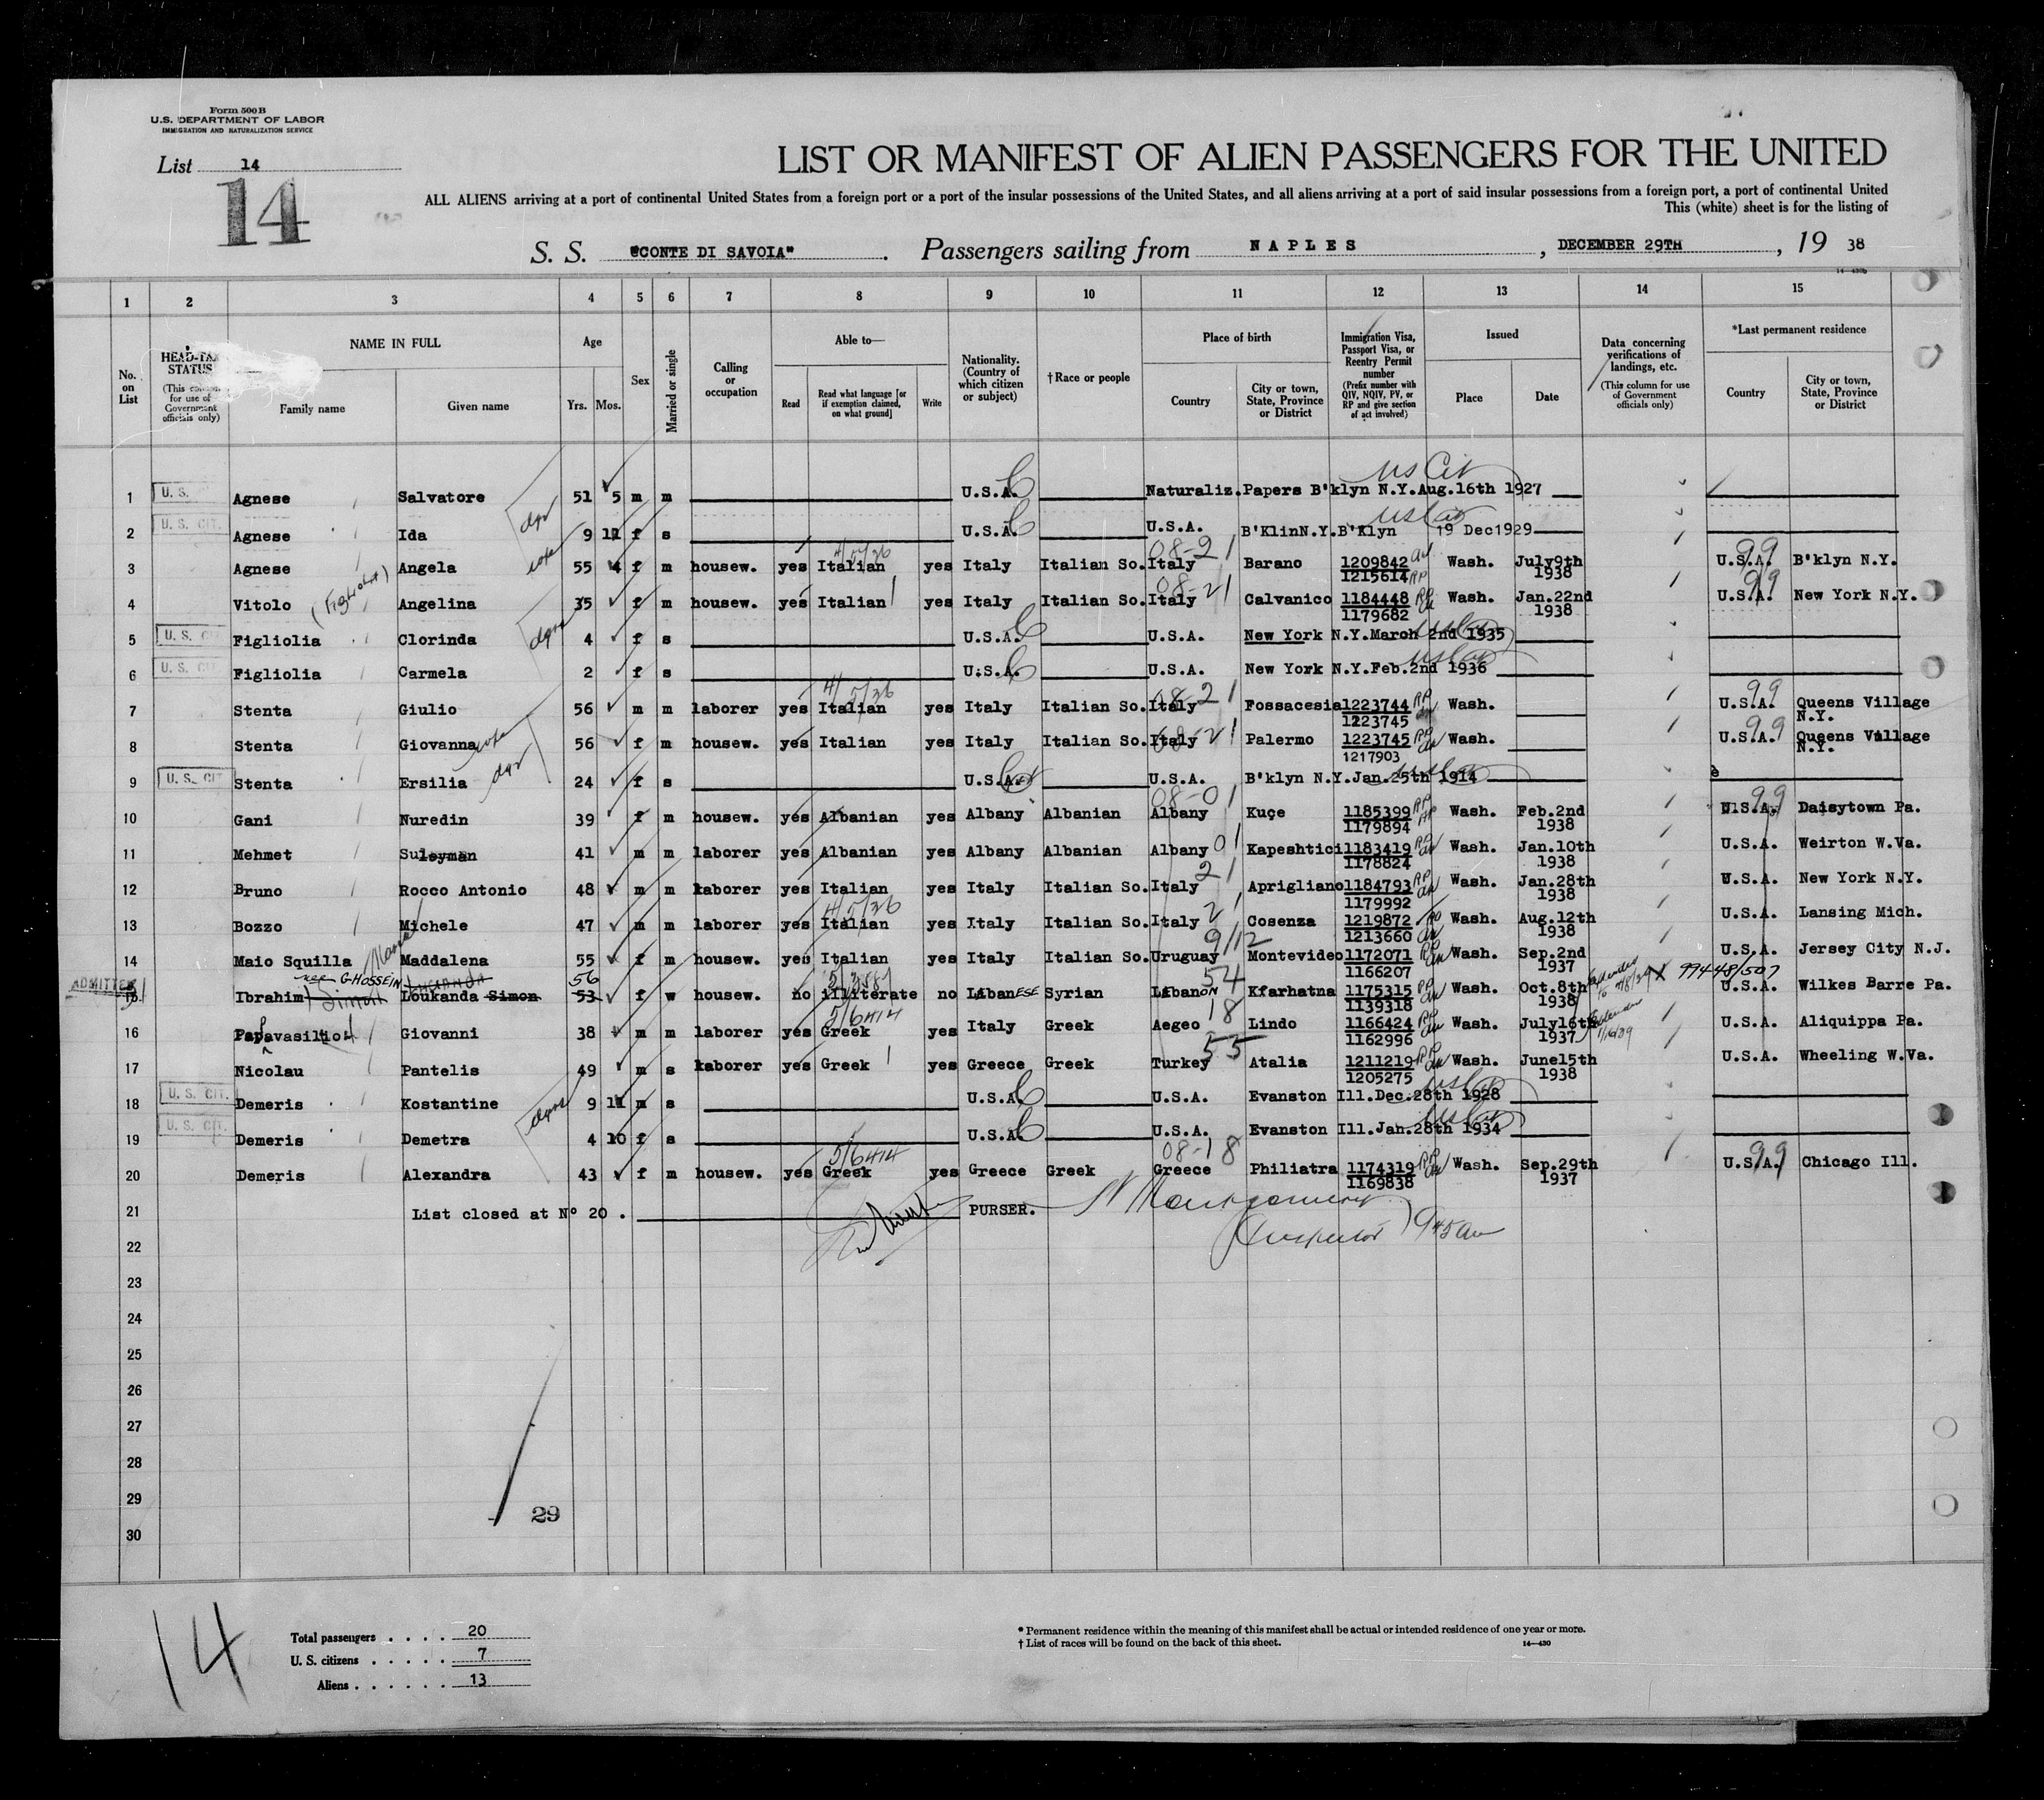 Form 500 B
U.S. DEPARTMENT OF LABOR
IMMIGRATION AND NATURALIZATION SERVICE
List 14
14
LIST OR MANIFEST OF ALIEN PASSENGERS FOR THE UNITED
ALL ALIENS arriving at a port of continental United States from a foreign port or a port of the insular possessions of the United States, and all aliens arriving at a port of said insular possessions from a foreign port, a port of continental United
This (white) sheet is for the listing of
S. S. "CONTE DI SAVOIA". Passengers sailing from NAPLES, DECEMBER 29TH, 19 38
14—430b
1 2 3 4 5 6 7 8 9 10 11 12 13 14 15
No. on List
HEAD-TAX STATUS (This column for use of Government officials only)
NAME IN FULL Family name Given name
Age Yrs. Mos.
Sex
Married or single
Calling or occupation
Able to— Read Read what language [or if exemption claimed, on what ground] Write
Nationality. (Country of which citizen or subject)
†Race or people
Place of birth Country City or town, State, Province or District
Immigration Visa, Passport Visa, or Reentry Permit number (Prefix number with QIV, NQIV, PV, or RP and give section of act involved)
Issued Place Date
Data concerning verifications of landings, etc. (This column for use of Government officials only)
*Last permanent residence Country City or town, State, Province or District
1 U.S. Agnese Salvatore 51 5 m m U.S.A. Naturaliz. Papers B'klyn N.Y. Aug.16th 1927 US Cit
2 U.S. CIT. Agnese Ida 9 11 f s U.S.A. U.S.A. B'KlinN.Y.B'Klyn 19 Dec1929 US Cit
3 Agnese Angela 55 4 f m housew. yes Italian yes Italy Italian So. Italy Barano 1209842 1215614 Wash. July9th 1938 U.S.A. B'klyn N.Y.
4 Vitolo (Figliolia) Angelina 35 f m housew. yes Italian yes Italy Italian So. Italy Calvanico 1184448 1179682 Wash. Jan.22nd 1938 U.S.A. New York N.Y.
5 U.S. CIT Figliolia Clorinda 4 f s U.S.A. U.S.A. New York N.Y. March 2nd 1935
6 U.S. CIT Figliolia Carmela 2 f s U.S.A. U.S.A. New York N.Y. Feb.2nd 1936
7 Stenta Giulio 56 m m laborer yes Italian yes Italy Italian So. Italy Fossacesia 1223744 1223745 Wash. U.S.A. Queens Village N.Y.
8 Stenta Giovanna 56 f m housew. yes Italian yes Italy Italian So. Italy Palermo 1223745 1217903 Wash. U.S.A. Queens Village N.Y.
9 U.S. CIT Stenta Ersilia 24 f s U.S.A. U.S.A. B'klyn N.Y. Jan.25th 1914 è
10 Gani Nuredin 39 f m housew. yes Albanian yes Albany Albanian Albany Kuçe 1185399 1179894 Wash. Feb.2nd 1938 U.S.A. Daisytown Pa.
11 Mehmet Suleyman 41 m m laborer yes Albanian yes Albany Albanian Albany Kapeshtici 1183419 1178824 Wash. Jan.10th 1938 U.S.A. Weirton W.Va.
12 Bruno Rocco Antonio 48 m m laborer yes Italian yes Italy Italian So. Italy Aprigliano 1184793 1179992 Wash. Jan.28th 1938 U.S.A. New York N.Y.
13 Bozzo Michele 47 m m laborer yes Italian yes Italy Italian So. Italy Cosenza 1219872 1213660 Wash. Aug.12th 1938 U.S.A. Lansing Mich.
14 Maio Squilla Maddalena 55 f m housew. yes Italian yes Italy Italian So. Uruguay Montevideo 1172071 1166207 Wash. Sep.2nd 1937 U.S.A. Jersey City N.J.
ADMITTED 15 Ibrahim Simon nee GHOSSEIN Loukanda Simon 53 56 f w housew. no illiterate no LibanESE Syrian LibanON Kfarhatna 1175315 1139318 Wash. Oct.8th 1938 99448/507 U.S.A. Wilkes Barre Pa.
16 Papavasiliou Giovanni 38 m m laborer yes Greek yes Italy Greek Aegeo Lindo 1166424 1162996 Wash. July16th 1937 U.S.A. Aliquippa Pa.
17 Nicolau Pantelis 49 m s laborer yes Greek yes Greece Greek Turkey Atalia 1211219 1205275 Wash. June15th 1938 U.S.A. Wheeling W.Va.
18 U.S. CIT. Demeris Kostantine 9 11 m s U.S.A. U.S.A. Evanston Ill. Dec.28th 1928
19 U.S. CIT. Demeris Demetra 4 10 f s U.S.A. U.S.A. Evanston Ill. Jan.28th 1934
20 Demeris Alexandra 43 f m housew. yes Greek yes Greece Greek Greece Philiatra 1174319 1169838 Wash. Sep.29th 1937 U.S.A. Chicago Ill.
21 List closed at N° 20. PURSER. Montgomery
22 Inspector 945 am
23
24
25
26
27
28
29
30
29
14
Total passengers 20
U. S. citizens 7
Aliens 13
* Permanent residence within the meaning of this manifest shall be actual or intended residence of one year or more.
† List of races will be found on the back of this sheet. 14—430